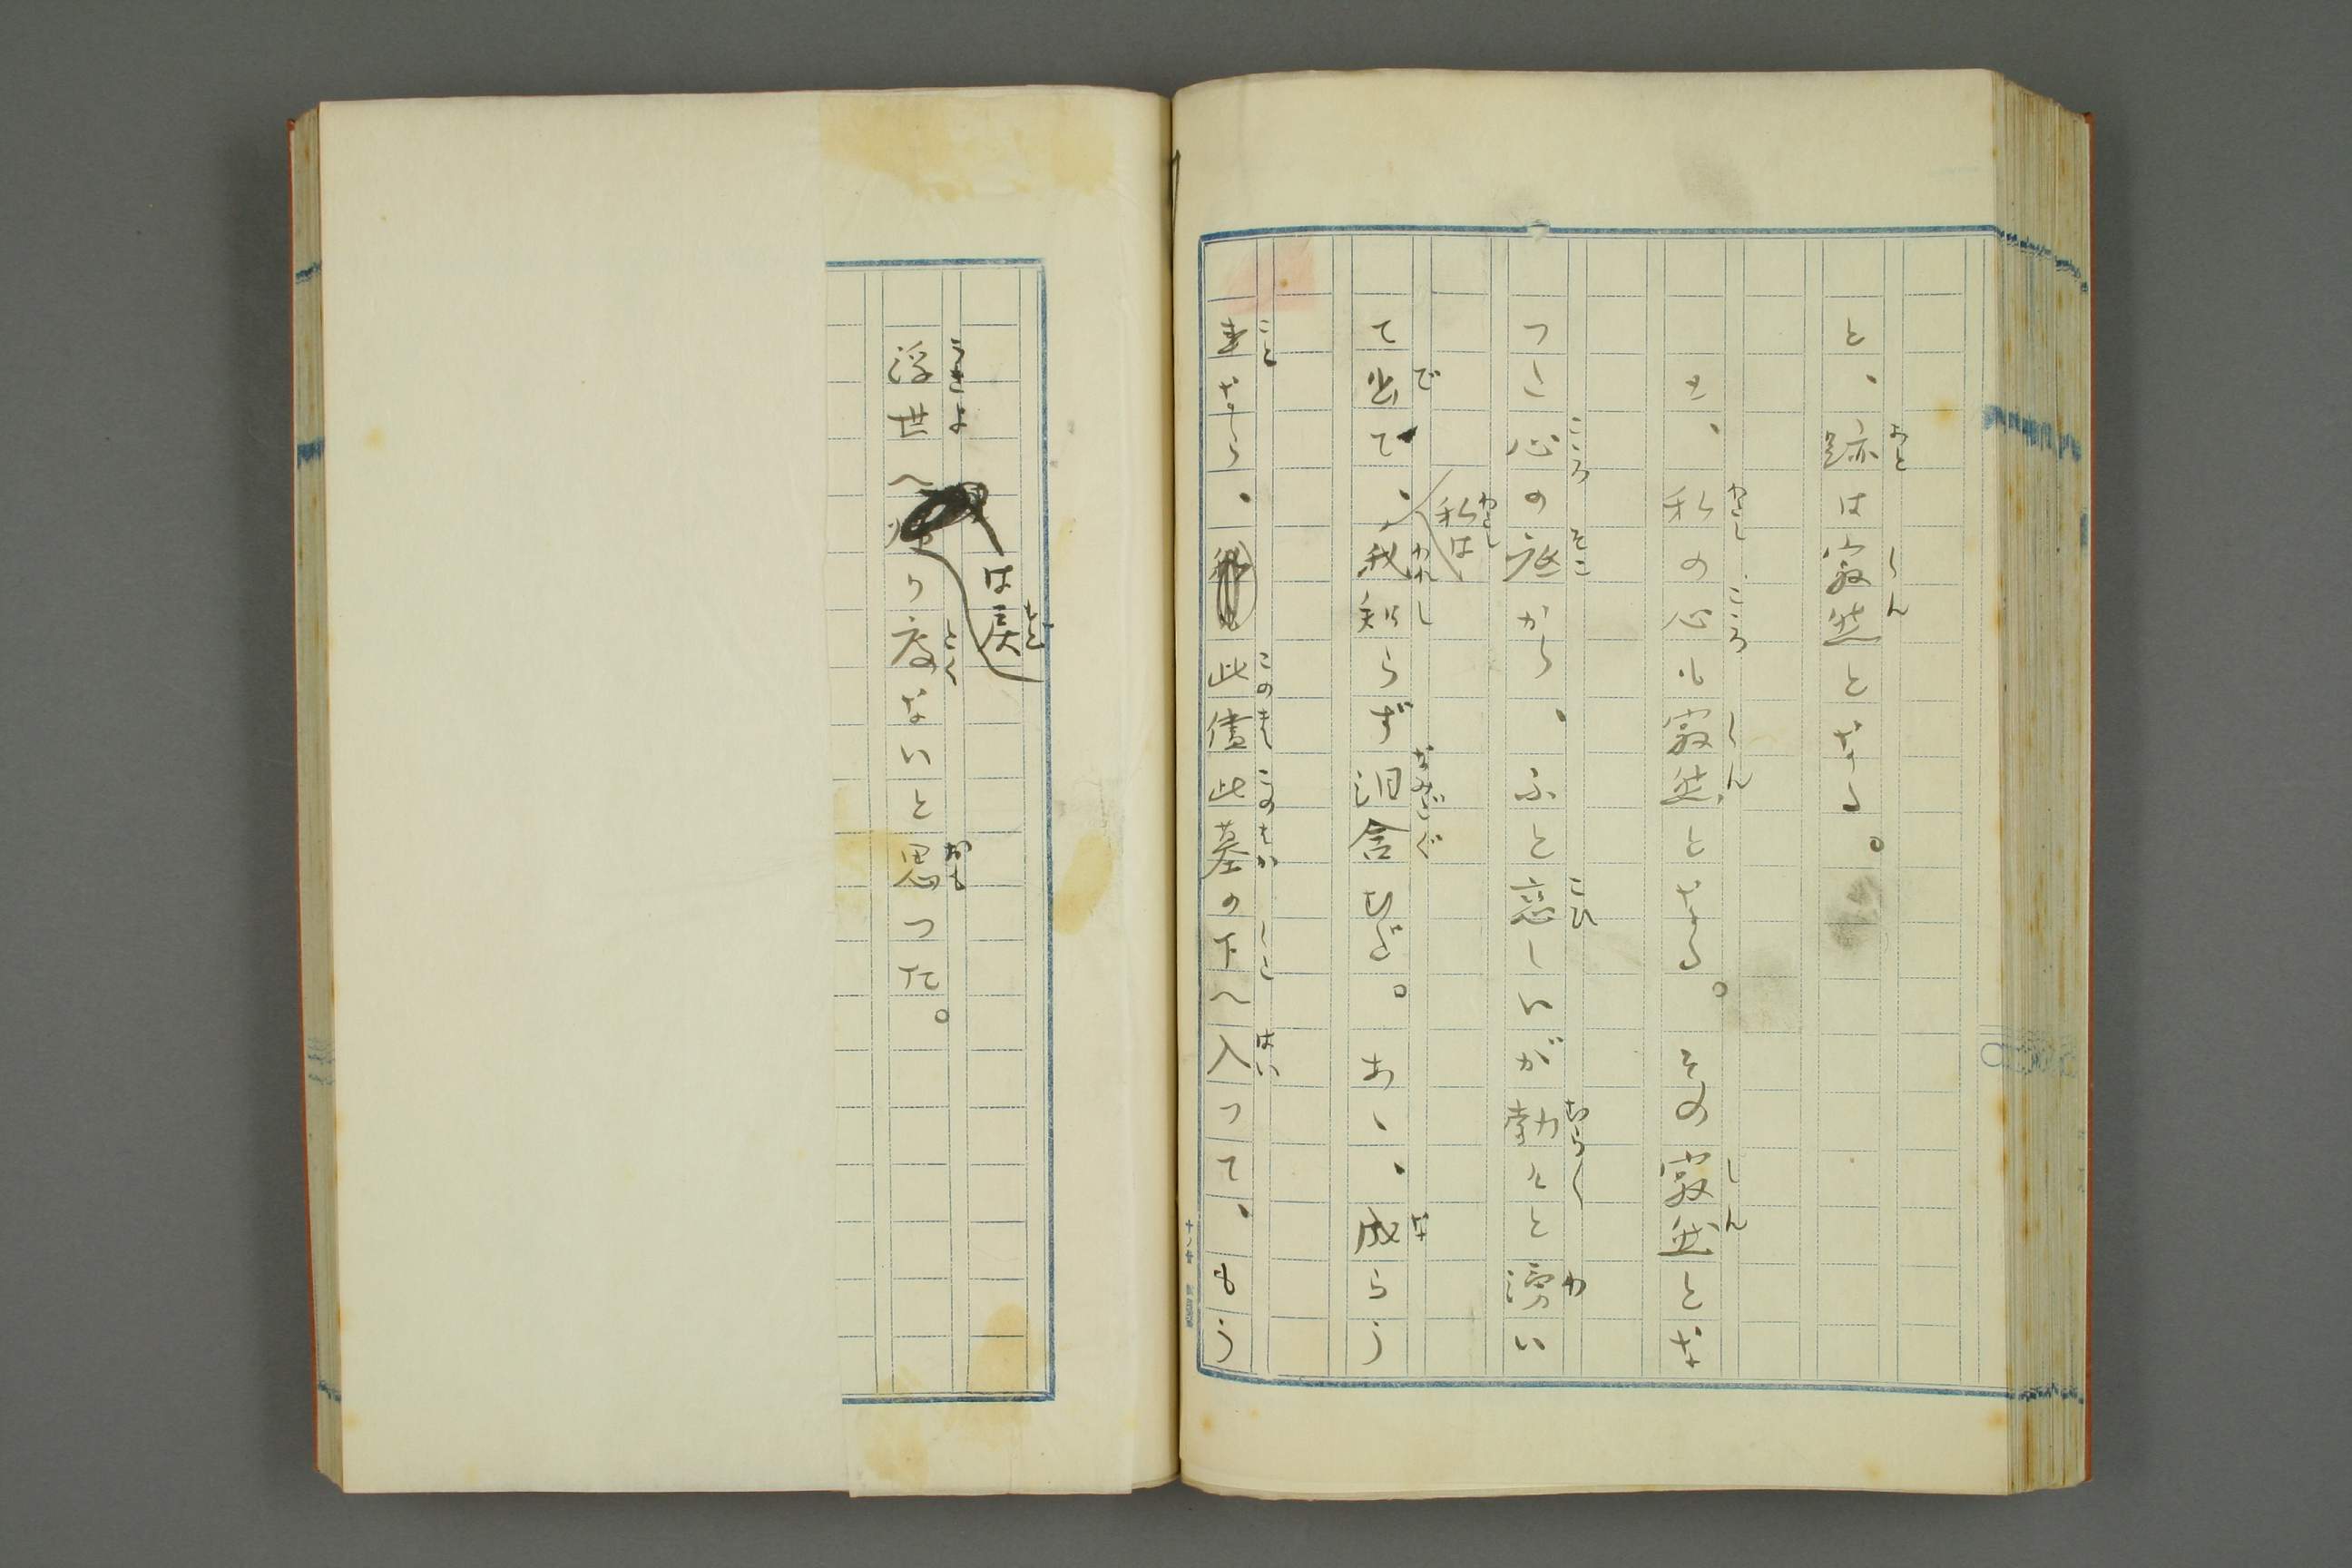 と、跡は寂然となる。
と、私の心も寂然となる。その寂然とな
つた心の底から、ふと恋しいが勃々と湧い
て出て、私は我知らず泪含むだ。あゝ、成らう
事なら、此儘此墓の下へ入つて、もう
浮世へは戻り度ないと思つた。